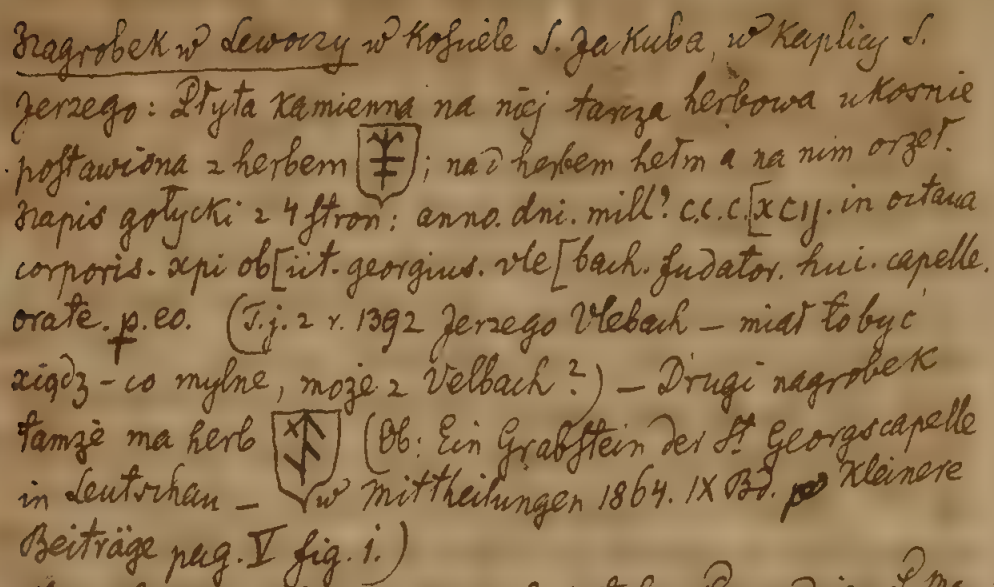 Nagrobek w Lewoczy w Kościele S. Jakuba, w Kaplicy S.
Jerzego: Płyta kamienna na niej tarcza herbowa ukosnie
postawiona z herbem ; nad herbem hełm a na nim orzeł.
Napis gotycki z 4 stron: anno. dni. mill? c.c.c.[xcij. in octaua
corporis. xpi ob[iit. georgius. vle[bach. fudator. hui. capelle.
orate. p. eo. (T.j. z r. 1392 Jerzego Vlebach – miał to być
xiądz – co mylne, może z Velbach?) – Drugi nagrobek
tamże ma herb (Ob: Ein Grabstein der St. Georgscapelle
in Leutschau – w Mittheilungen 1864. IX Bd. Kleinere
Beiträge pag. V fig. 1.)